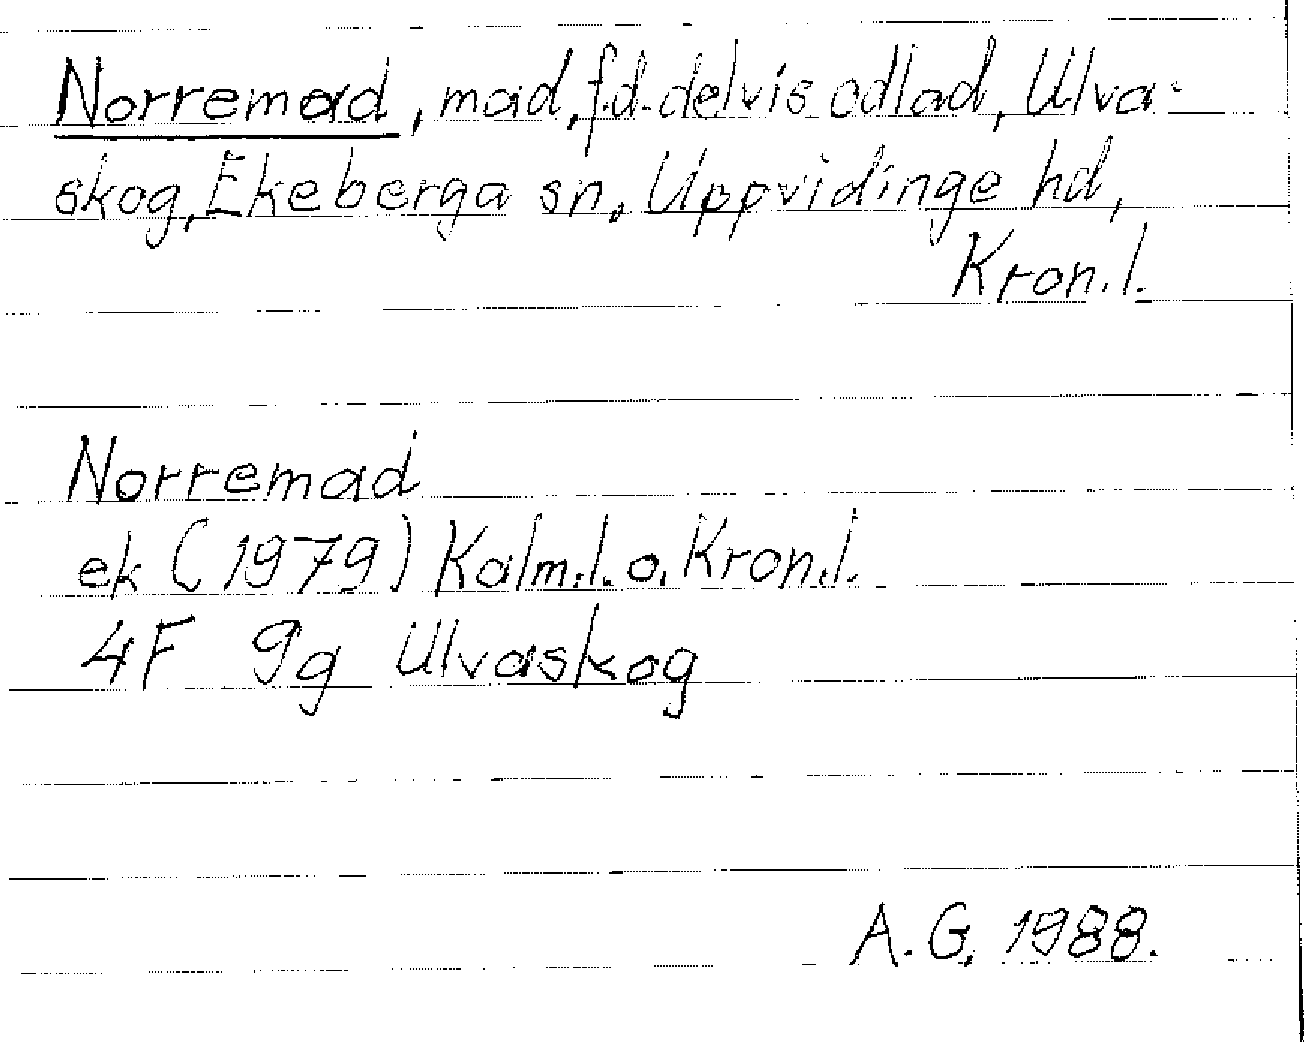 Norremad, mad, f.d. delvis odlad, Ulva-
skog, Ekeberga sn, Uppvidinge hd,
Kron.l.
Norremad
ek (1979) Kalm.l. o. Kron.l.
4F 9g Ulvaskog
A.G. 1988.